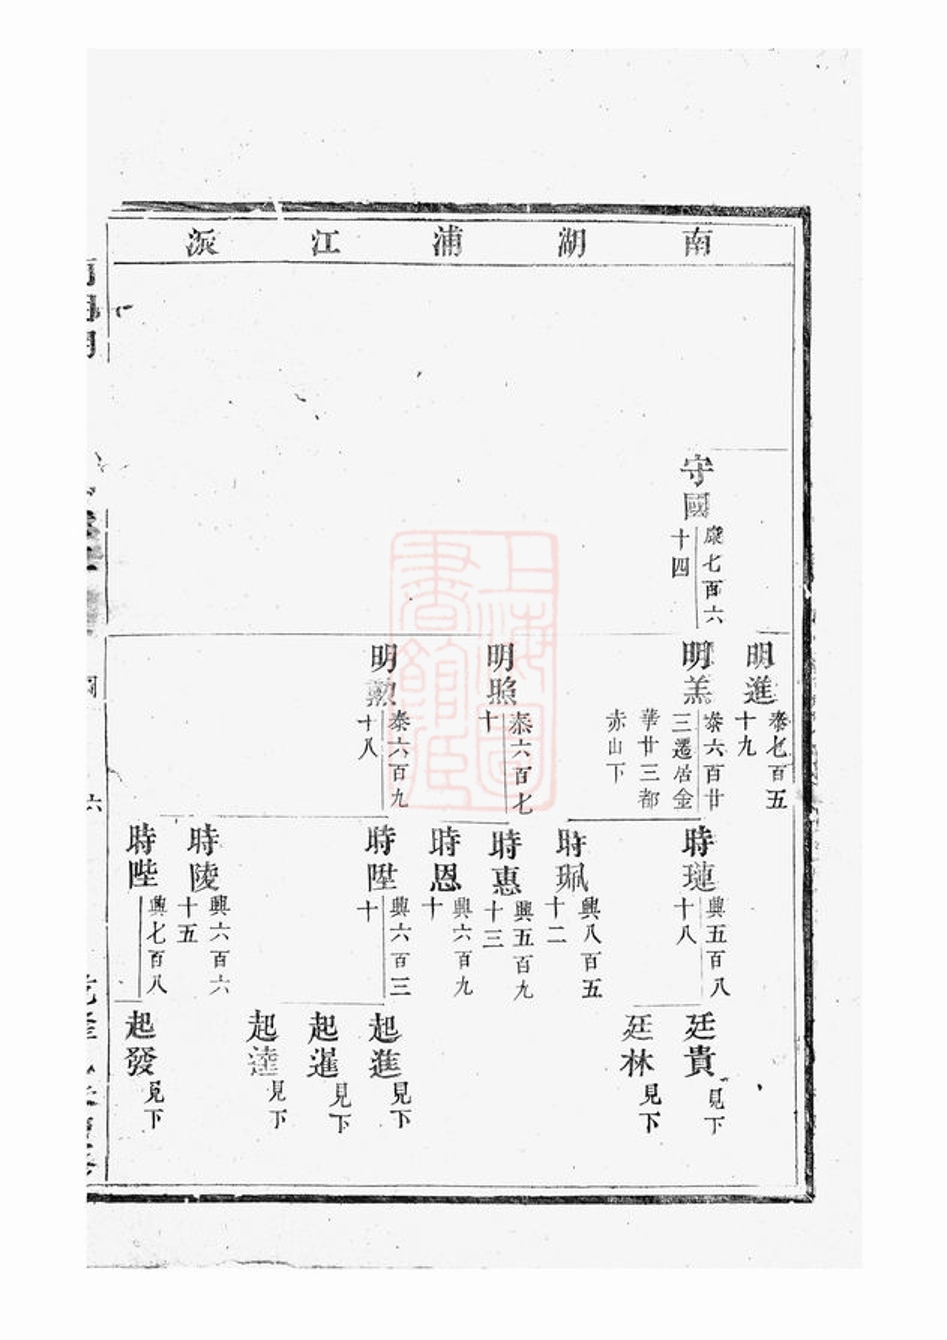 南湖浦江派
守國 康七百六十四
明進 泰七百五十九
明羔 泰六百廿三遷居金華廿三都赤山下
明照 泰六百七十
明勲 泰六百九十八
時璉 興五百八十八
時珮 興八百五十二
時惠 興五百九十三
時恩 興六百九十
時陞 興六百三十
時陵 興六百六十五
時陛 興七百八
廷貴 見下
廷林 見下
起進 見下
起暹 見下
起達 見下
起發 見下
六